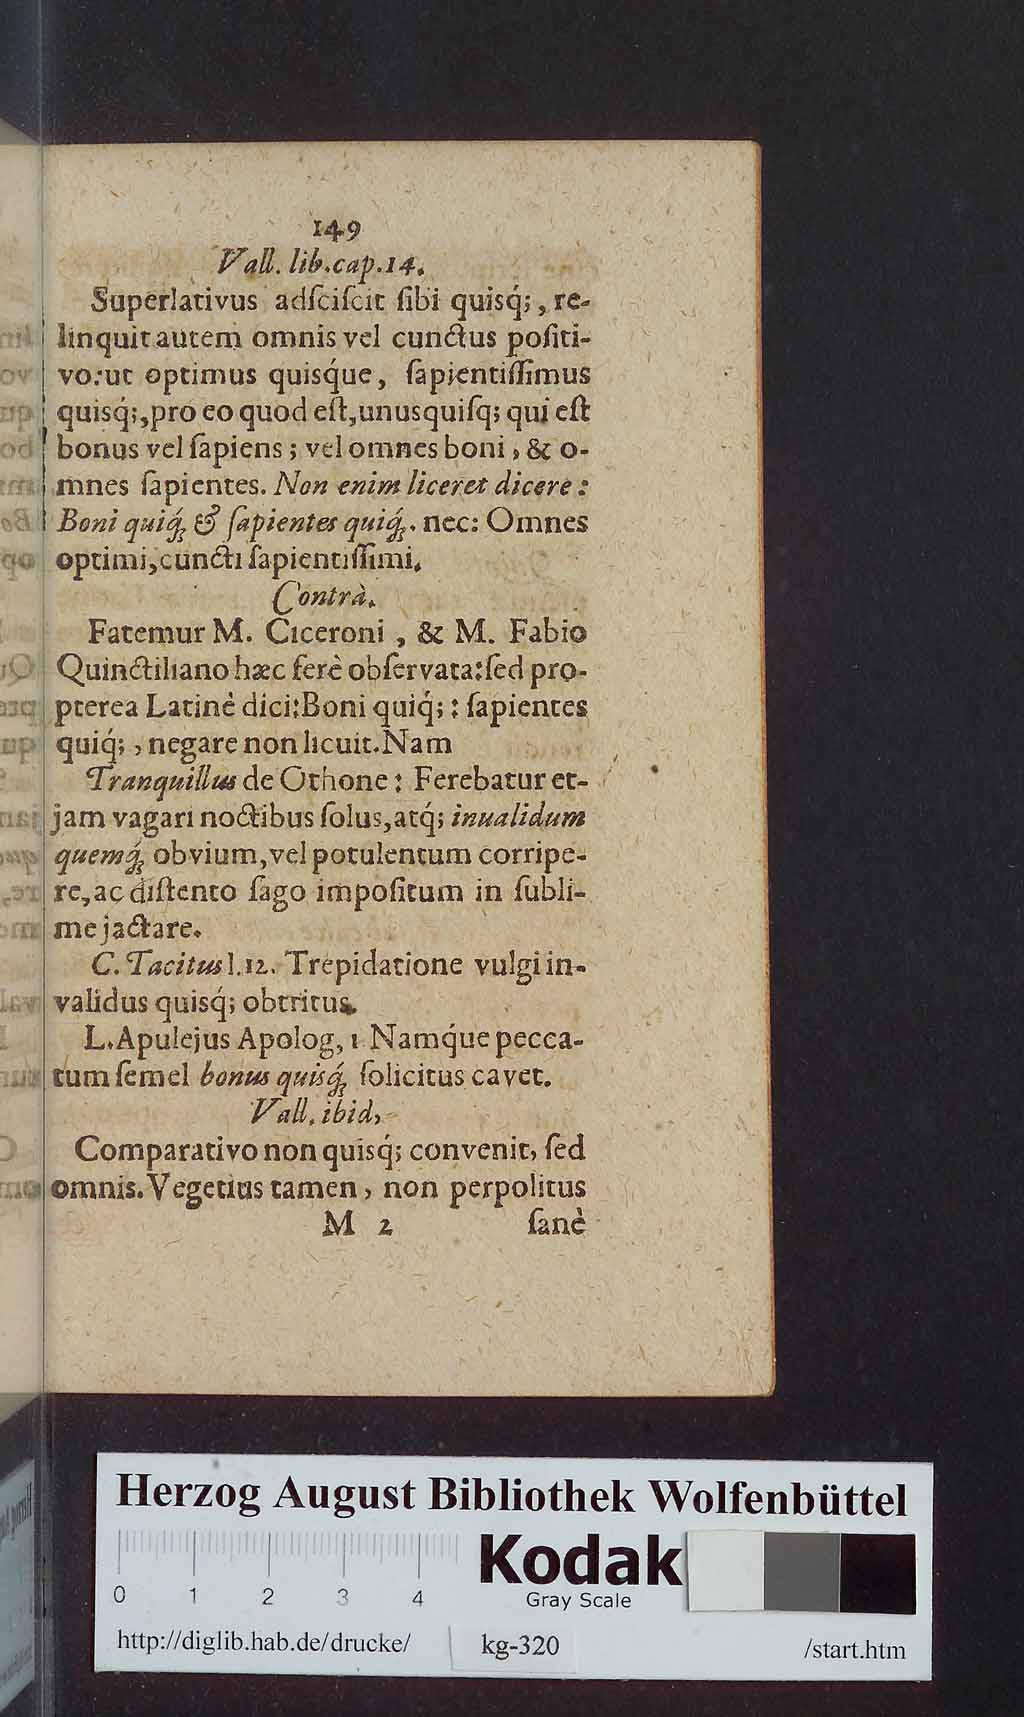 149
Vall. lib. cap. 14.
Superlativus adſciſcit ſibi quisq́;, re-
linquit autem omnis vel cunctus poſiti-
vo: ut optimus quisq́ue, ſapientiſſimus
quisq́;, pro eo quod eſt, unusquiſq; qui eſt
bonus vel ſapiens; vel omnes boni, & o-
mnes ſapientes. Non enim liceret dicere:
Boni quiq́; & ſapientes quiq́;. nec: Omnes
optimi, cuncti ſapientiſſimi.
Contrà.
Fatemur M. Ciceroni, & M. Fabio
Quinctiliano hæc ferè obſervata: ſed pro-
pterea Latinè dici: Boni quiq́; : ſapientes
quiq́;, negare non licuit. Nam
Tranquillus de Othone: Ferebatur et-
jam vagari noctibus ſolus, atq́; inualidum
quemq́; obvium, vel potulentum corripe-
re, ac diſtento ſago impoſitum in ſubli-
me jactare.
C. Tacitus l. 12. Trepidatione vulgi in-
validus quisq́; obtritus.
L. Apulejus Apolog, 1 Namq́ue pecca-
tum ſemel bonus quisq́; ſolicitus cavet.
Vall. ibid,
Comparativo non quisq́; convenit, ſed
omnis. Vegetius tamen, non perpolitus
M 2 ſanè
Herzog August Bibliothek Wolfenbüttel
0 1 2 3 4
Kodak
Gray Scale
http://diglib.hab.de/drucke/ kg-320 /start.htm